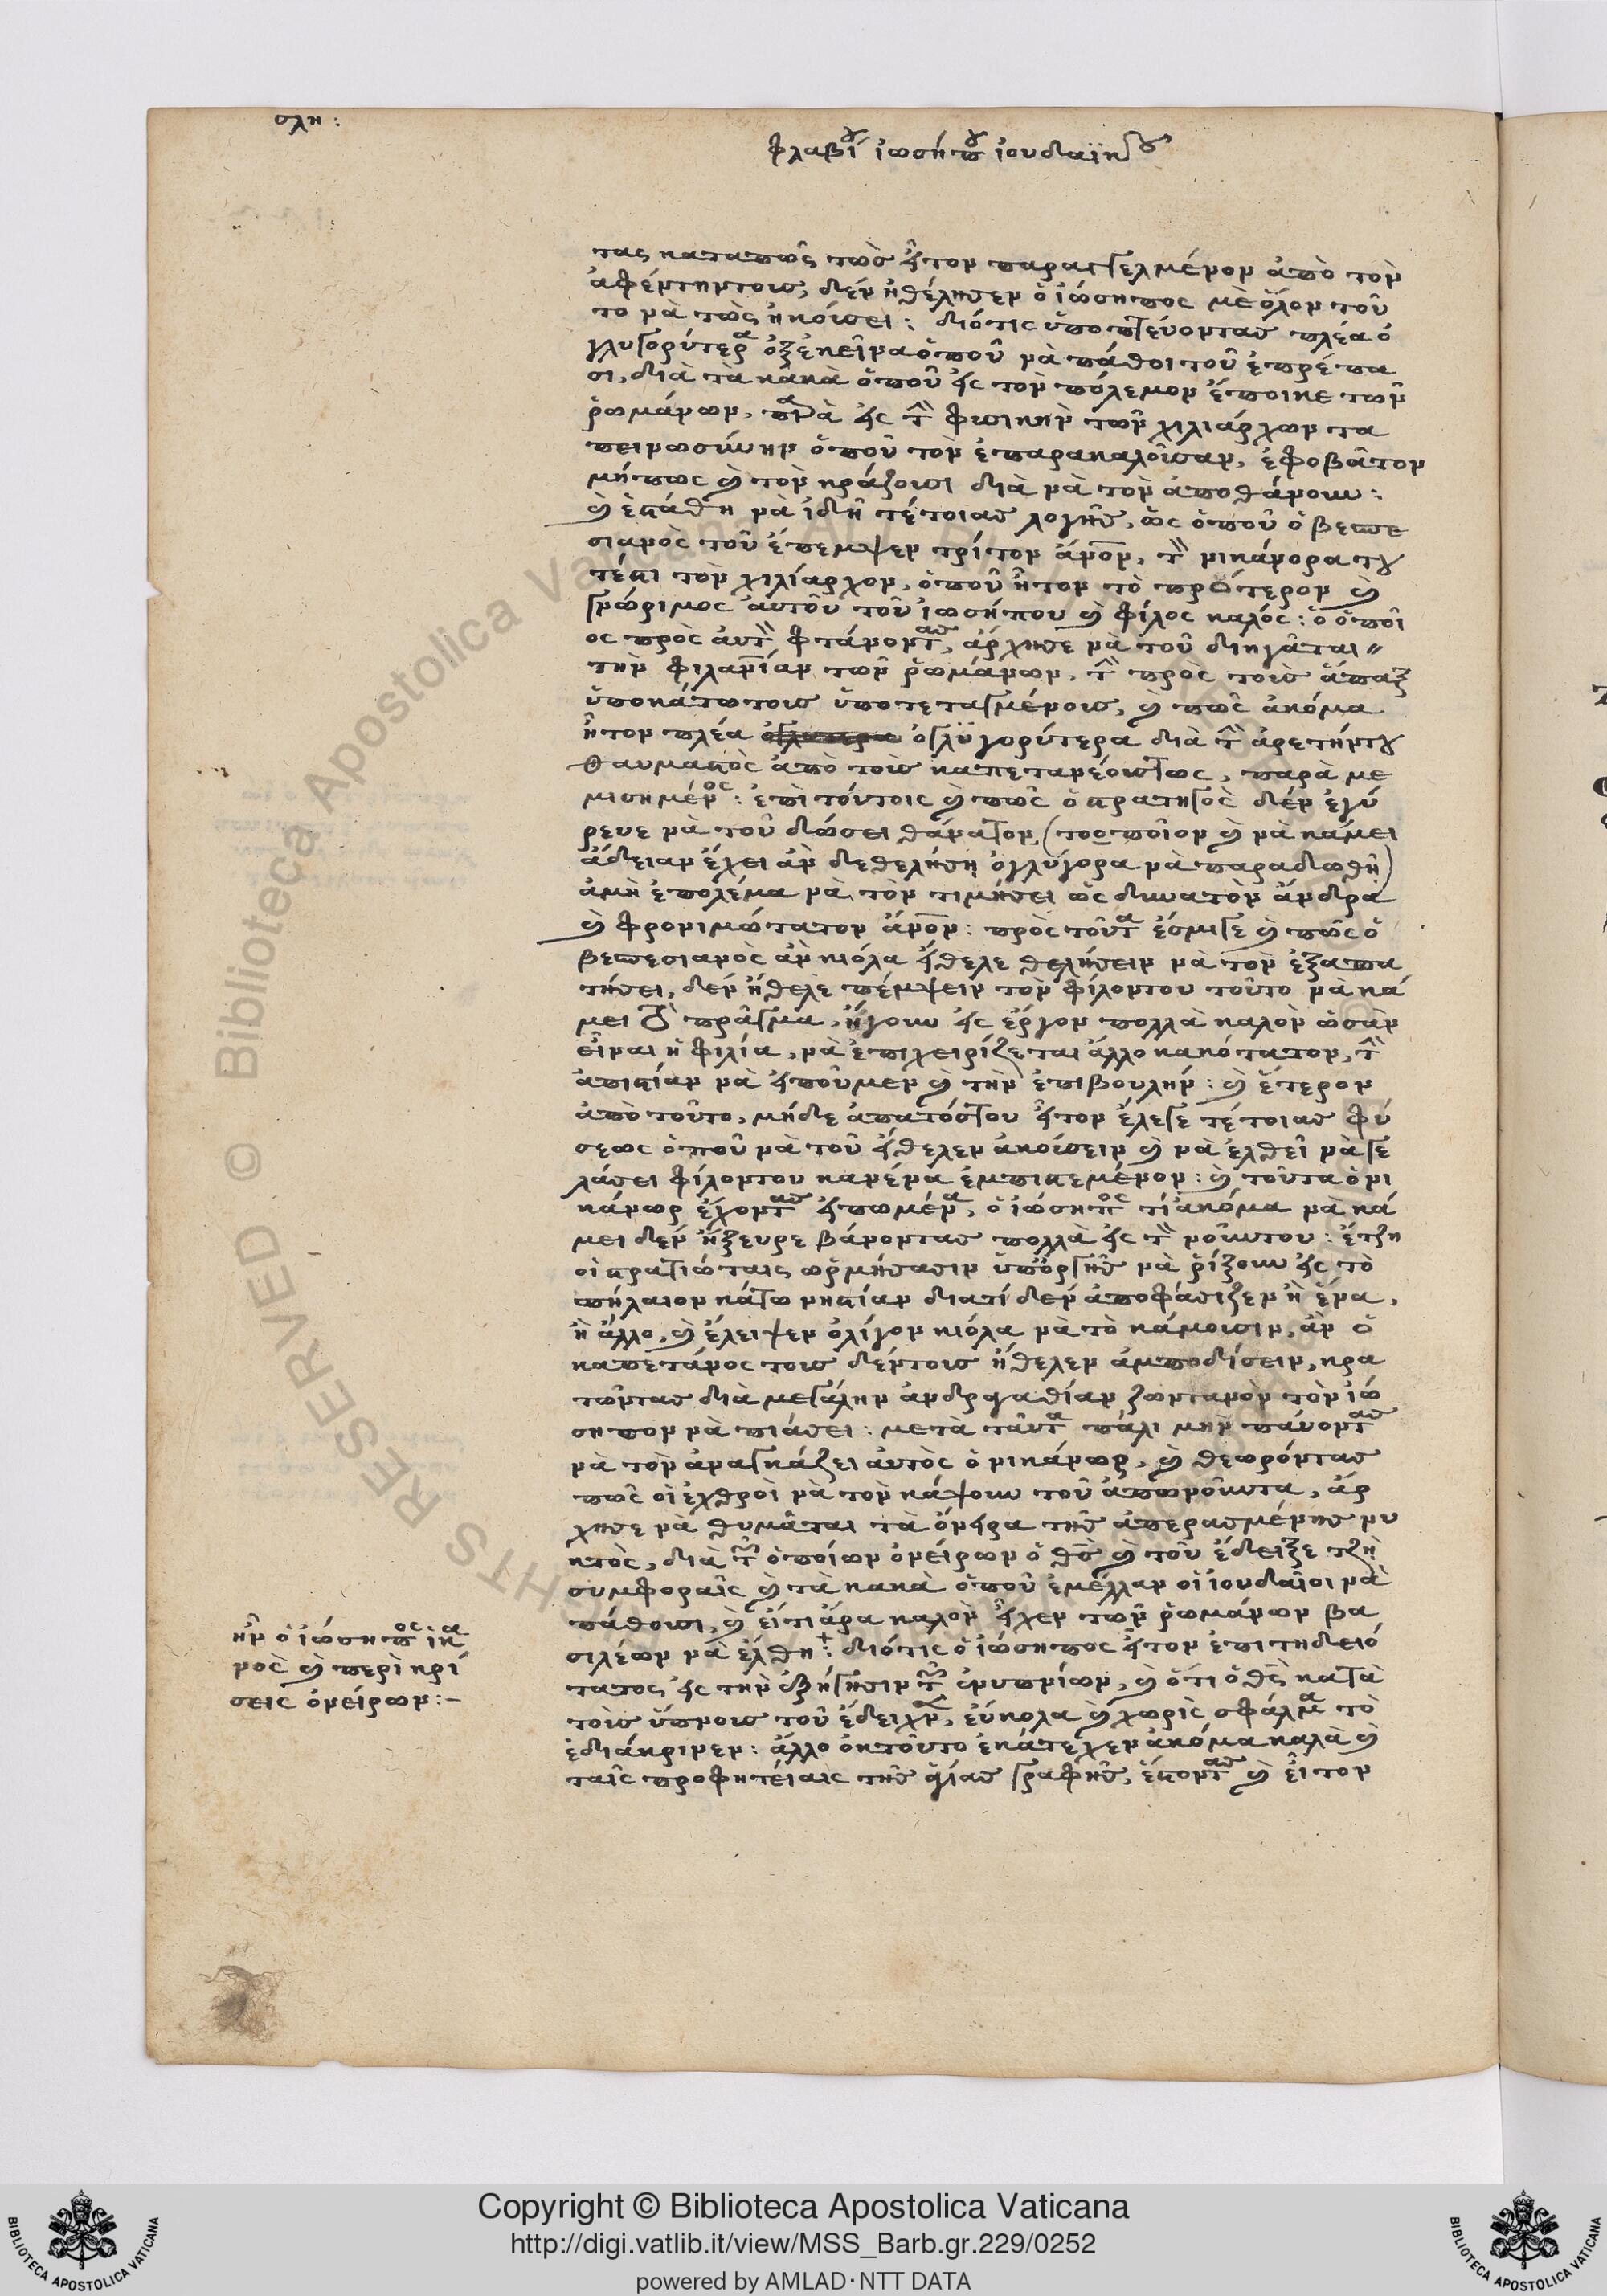 σλη:
φλαβίου ἰωσήπου ἰουδαϊκοῦ
τας καταπῶς τὼσ ἦτον παραγγελμένον ἀπὸ τὸν
ἀφέντητους, δὲν ἠθέλησεν ὁ ἰώσηπος μὲ ὅλον τοῦ
το νὰ τὼς ἠκούσει: διότις ὑποπτεύονταν πλέα ὀ
γλυγορύτερα ὀξἐκεῖνα ὁποῦ νὰ πάθοι τοῦ ἐπρέπα
σι, διὰ τὰ κακὰ ὁποῦ εἰς τὸν πόλεμον ἔποικε τῶν
ῥωμάνων, παρὰ εἰς τὴν φωικὴν τῶν χιλιάρχων τα
πεινωσύνην ὁποῦ τὸν ἐπαρακαλοῦσαν, ἐφοβᾶτον
μήπως καὶ τὸν κράζουσι διὰ νὰ τὸν ἀποθάνουν:
καὶ ἐστάθη νὰ ἰδῆ τέτοιας λογῆς, ὣς ὁποῦ ὁ βεσπε
σιανὸς τοῦ ἔπεμψεν τρίτον ἄνον, τὸν νικάνορα του
τέστι τὸν χιλίαρχον, ὁποῦ ἦτον τὸ πρότερον καὶ
γνώριμος αὐτοῦ τοῦ ἰωσήπου καὶ φίλος καλός: ὁ ὁποῖ
ος πρὸς αὐτὸν φτάνοντας, ἄρχησε νὰ τοῦ διηγᾶται
τὴν φιλανίαν τῶν ῥωμάνων, τὴν πρὸς τοὺς ἅπαξ
ὑποκάτωτους ὑποτεταγμένους, καὶ πῶς ἀκόμα
ἦτον πλέα ὀγλυγορύτερα διὰ τὴν ἀρετήντου
θαυμαστὸς ἀπὸ τοὺς καπετανέουςτως, παρὰ με
μισημένος: ἐπὶ τούτοις καὶ πῶς ὁ στρατηγὸς δὲν ἐγύ
ρευε νὰ τοῦ δώσει θάνατον, (τοοποῖον καὶ νὰ κάμει
ἄδειαν ἔχει ἂν δεθελήση ὀγλύγορα νὰ παραδωθῆ)
ἀμὴ ἐπολέμα νὰ τὸν τιμήσει ὡς δυνατὸν ἄνδρα
καὶ φρονιμώτατον ἄνον: πρὸς τοῦτα ἔσμιξε καὶ πῶς ὁ
βεσπεσιανὸς ἂν κιόλα ἤθελε θελήσειν νὰ τὸν ἐξαπα
τήσει, δὲν ἤθελε πέμψειν τὸν φίλοντου τοῦτο νὰ κά
μει τὸ πρᾶγμα, ἤγουν εἰς ἔργον πολλὰ καλὸν ὡσὰν
εἶναι ἡ φιλία, νὰ ἐπιχειρίζεται ἄλλο κακότατον, τὴν
ἀπιστίαν νὰ εἰποῦμεν καὶ τὴν ἐπιβουλήν: καὶ ἕτερον
ἀπὸ τοῦτο, μήδε ἀπατόςτου ἦτον ἔλεγε τέτοιας φύ
σεως ὁποῦ νὰ τοῦ ἤθελεν ἀκούσειν καὶ νὰ ἐλθεῖ νὰ γε
λάσει φίλοντου κανένα ἐμπιστεμένον: καὶ τοῦτα ὁ νι
κάνωρ ἔχοντας εἰπωμένα, ὁ ἰώσηπος τί ἀκόμα νὰ κά
μει δὲν ἤξευρε βάνοντας πολλὰ εἰς τὸν νοῦντου: ἔτζη
οἱ στρατιώταις ὡρμήσασιν ὑπόργῆς νὰ ῥίξουν εἰς τὸ
σπήλαιον κάτω νηστίαν διατί δὲν ἀποφάσιζεν ἢ ἕνα,
ἢ ἄλλο, καὶ ἔλειψεν ὀλίγον κιόλα νὰ τὸ κάμουσιν, ἂν ὁ
καπετάνος τους δέντους ἤθελεν ἀμποδίσειν, κρα
τῶντας διὰ μεγάλην ἀνδραγαθίαν ζωντανὸν τὸν ἰώ
σηπον νὰ πιάσει: μετὰ ταῦτα πάλι μὴν πάυοντας
νὰ τὸν ἀναγκάζει αὐτὸς ὁ νικάνωρ, καὶ θεωρόντας
πῶς οἱ ἐχθροὶ νὰ τὸν κάψουν τοῦ ἀπονοῦντα, ἄρ
χησε νὰ θυμᾶται τὰ ὄνειρα τῆς ἀπερασμένης νυ
κτὸς, διὰ τῶν ὁποίων ὀνείρων ὁ θς καὶ τοῦ ἔδειξε τζὴ
συμφοραῖς καὶ τὰ κακὰ ὁποῦ ἐμέλλαν οἱ ἰουδαῖοι νὰ
πάθουσι, καὶ εἴτι ἄρα καλὸν εἶχεν τῶν ῥωμάνων βα
σιλέων νὰ ἐλθη: διότις ὁ ἰώσηπος ἦτον ἐπιτηδειό
τατος εἰς τὴν ἐξήγησιν τῶν ἐνυπνίων, καὶ ὅτι ὁ θς κατὰ
τοὺς ὕπνους τοῦ ἔδειχνεν, εὔκολα καὶ χωρὶς σφάλμα τὸ
ἐδιάκρινεν: ἄλλο ὀκτοῦτο ἐκάτεχεν ἀκόμα καλὰ καὶ
ταῖς προφητείαις τῆς ἁγίας γραφῆς, ἔστοντας καὶ εἶτον
ἦν ὁ ἰώσηπος ἱκα
νος καὶ περὶ κρί
σεις ὀνείρων:–
Copyright © Biblioteca Apostolica Vaticana
http://digi.vatlib.it/view/MSS_Barb.gr.229/0252
powered by AMLAD·NTT DATA